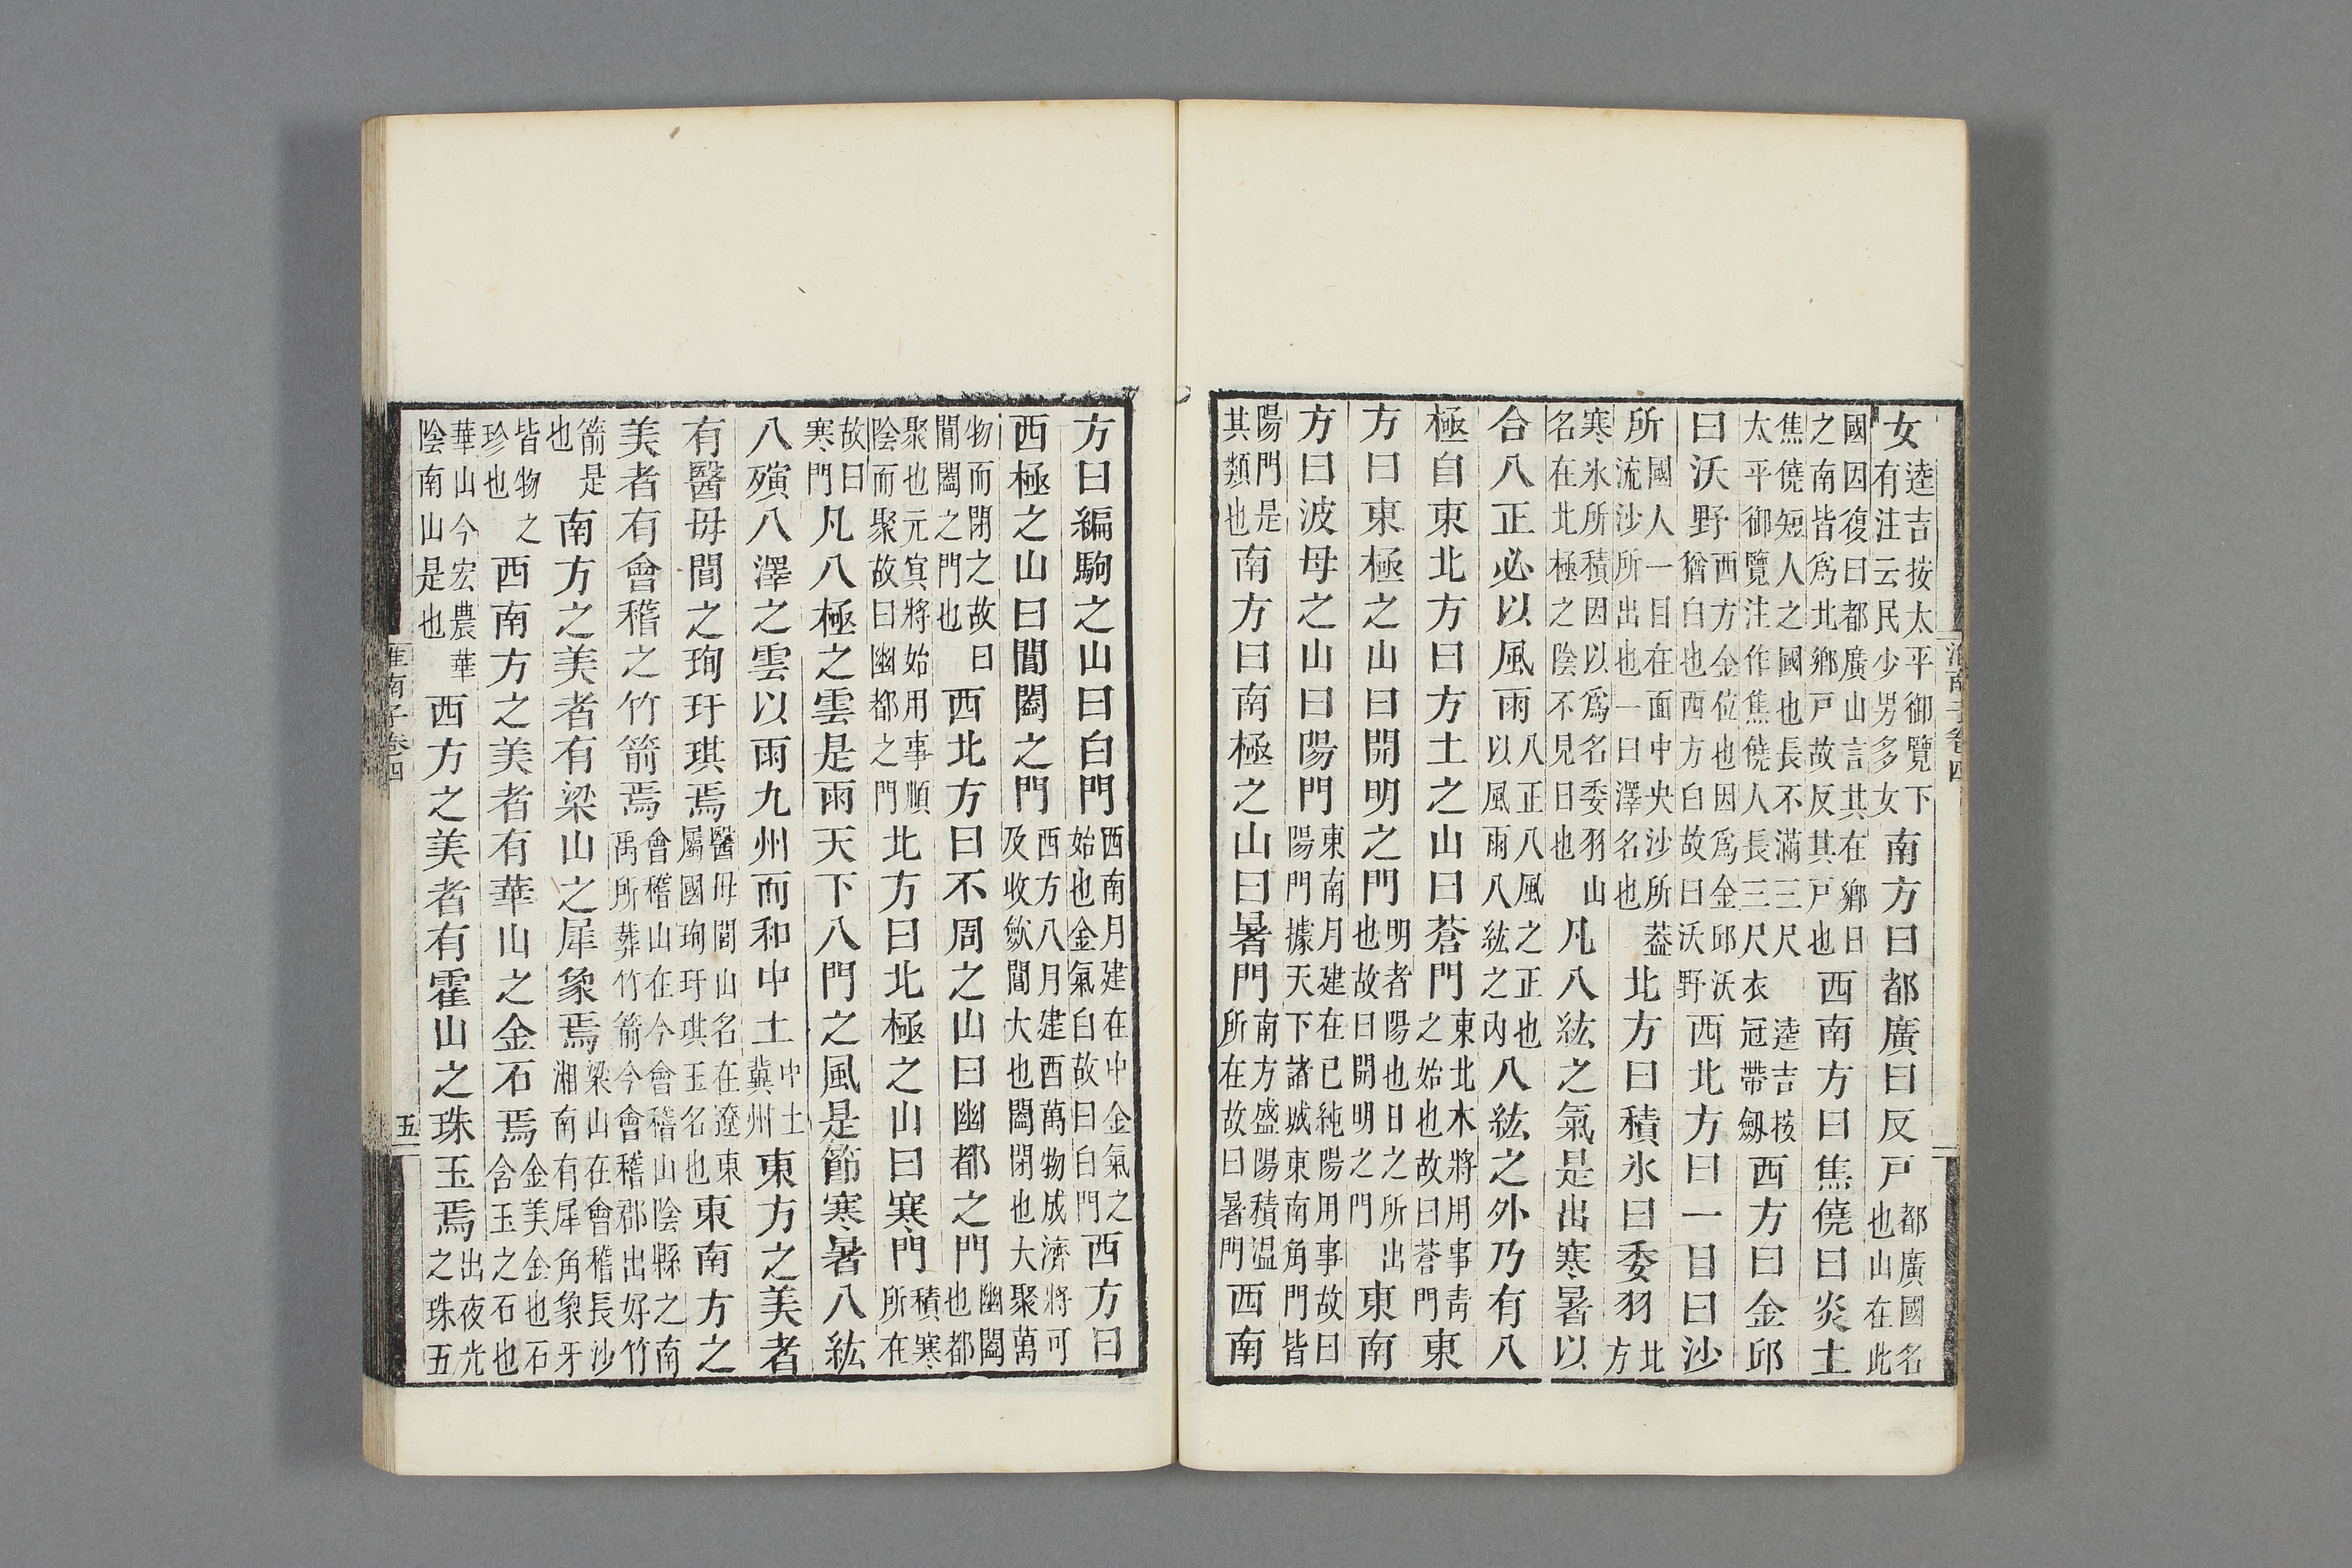 淮南子卷四
女逵吉按太平御覽下有注云民少男多女南方曰都廣曰反戸都廣國名也山在此
國因復曰都廣山言其在鄉日之南皆爲北鄉戸故反其戸也西南方曰焦僥曰炎土
焦僥短人之國也長不滿三尺逵吉按太平御覽注作焦僥人長三尺衣冠帶劔西方曰金邱
曰沃野西方金位也因爲金邱沃猶白也西方白故曰沃野西北方曰一目曰沙
所國人一目在面中央沙所蓋流沙所出也一曰澤名也北方曰積氷曰委羽北方
寒氷所積因以爲名委羽山名在北極之陰不見日也凡八紘之氣是出寒暑以
合八正必以風雨八正八風之正也以風雨八紘之内八紘之外乃有八
極自東北方曰方土之山曰蒼門東北木將用事靑之始也故曰蒼門東
方曰東極之山曰開明之門明者陽也日之所出也故曰開明之門東南
方曰波母之山曰陽門東南月建在巳純陽用事故曰陽門據天下諸城東南角門皆
陽門是其類也南方曰南極之山曰暑門南方盛陽積温所在故曰暑門西南
方曰編駒之山曰白門西南月建在中金氣之始也金氣白故曰白門西方曰
西極之山曰閶闔之門西方八月建酉萬物成濟將可及收斂閶大也闔閉也大聚萬
物而閉之故曰閶闔之門也西北方曰不周之山曰幽都之門幽闔也都
聚也元冥將始用事順陰而聚故曰幽都之門北方曰北極之山曰寒門積寒所在
故曰寒門凡八極之雲是雨天下八門之風是節寒暑八紘
八殥八澤之雲以雨九州而和中土中土冀州東方之美者
有醫毋閭之珣玗琪焉醫毋閭山名在遼東屬國珣玗琪玉名也東南方之
美者有會稽之竹箭焉會稽山在今會稽山陰縣之南禹所葬竹箭今會稽郡出好竹
箭是也南方之美者有梁山之犀象焉梁山在會稽長沙湘南有犀角象牙
皆物之珍也西南方之美者有華山之金石焉金美金也石含玉之石也
華山今宏農華陰南山是也西方之美者有霍山之珠玉焉出夜光之珠五
淮南子卷四
五